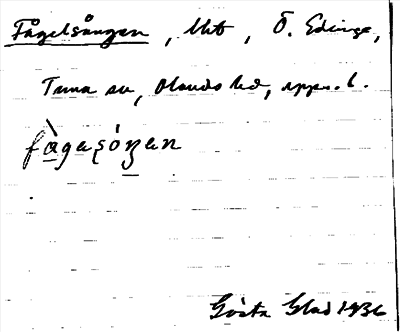 Fågelsången, lht, Ö. Edinge,
Tuna sn, Olands hd, Upps. l.
fàgasóŋen
Gösta Glad 1936